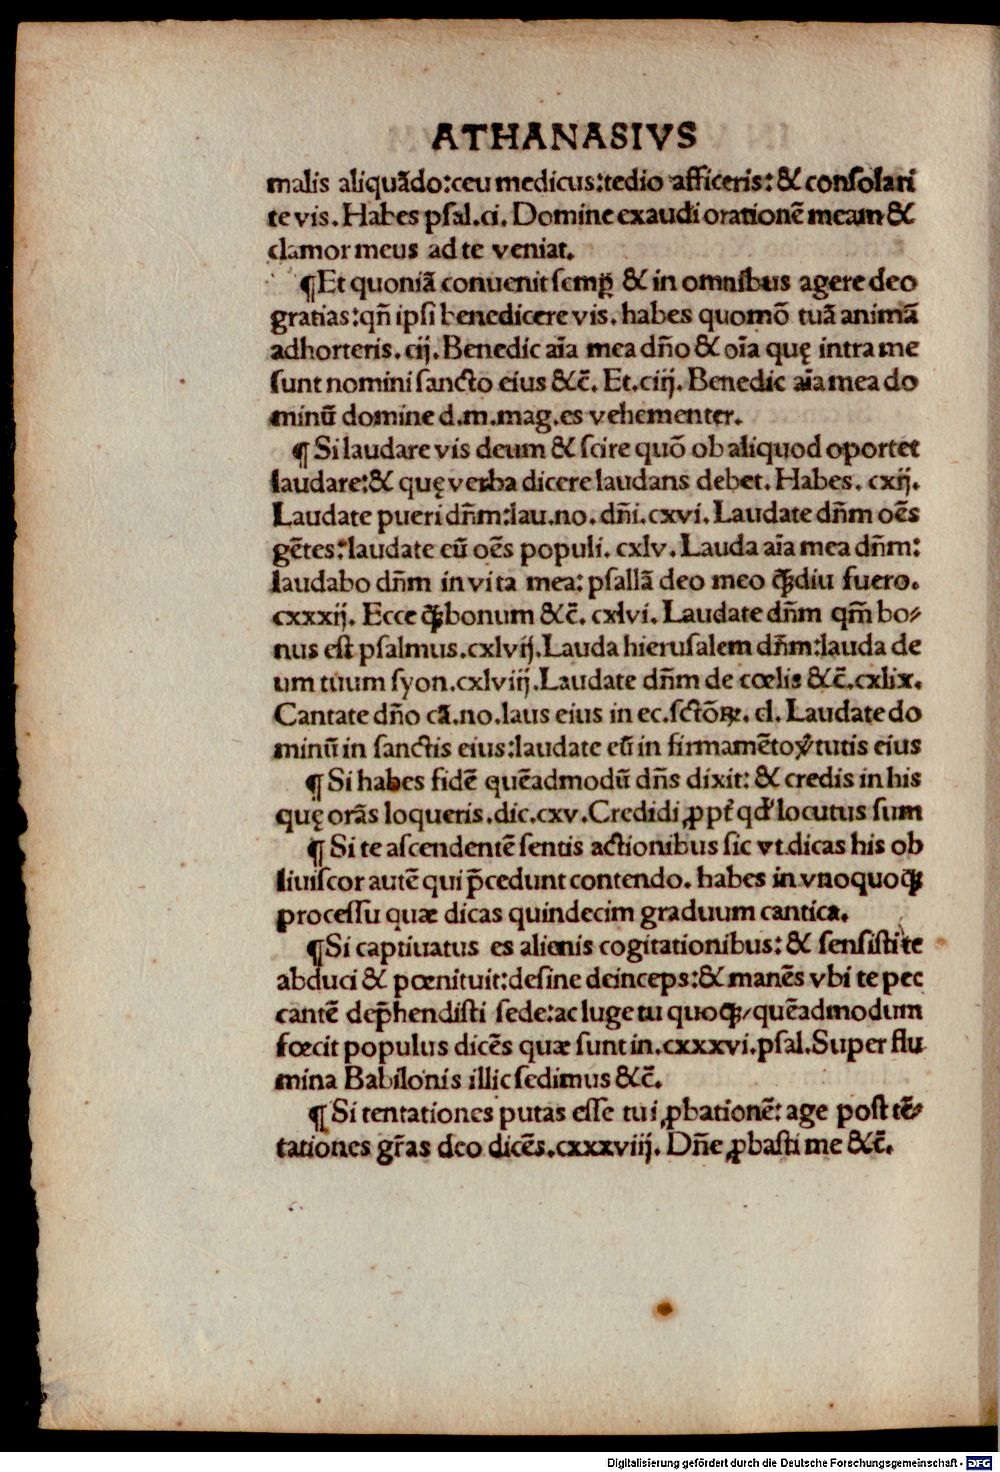 ATHANASIVS
malis aliquādo:ceu medicus:tedio afficeris:& conſolari
te vis. Habes pſal.ci. Domine exaudi orationē meam &
clamor meus ad te veniat.
¶Et quoniā conuenit ſemꝑ & in omnibus agere deo
gratias:qn̄ ipſi benedicere vis. habes quomō tuā animā
adhorteris. cij. Benedic aīa mea dn̄o & oīa quę intra me
ſunt nomini ſancto eius &c̄. Et.ciij. Benedic aīa mea do
minū domine d.m.mag.es vehementer.
¶ Si laudare vis deum & ſcire quō ob aliquod oportet
laudare:& quę verba dicere laudans debet. Habes. cxij.
Laudate pueri dn̄m:lau.no. dn̄i.cxvi. Laudate dn̄m oēs
gētes:laudate eū oēs populi. cxlv. Lauda aīa mea dn̄m:
laudabo dn̄m in vita mea: pſallā deo meo ꝙdiu fuero.
cxxxij. Ecce ꝙ bonum &c̄. cxlvi. Laudate dn̄m qm̄ bo⸗
nus eſt pſalmus.cxlvij.Lauda hieruſalem dn̄m:lauda de
um tuum ſyon.cxlviij.Laudate dn̄m de cœlis &c̄.cxlix.
Cantate dn̄o cā.no.laus eius in ec.ſctōꝝ. cl. Laudate do
minū in ſanctis eius:laudate eū in firmamēto v̓tutis eius
¶ Si habes fidē quēadmodū dn̄s dixit: & credis in his
quę orās loqueris.dic.cxv.Credidi ꝓpt̓ qd̓ locutus ſum
¶ Si te aſcendentē ſentis actionibus ſic vt dicas his ob
liuiſcor autē qui p̄cedunt contendo. habes in vnoquoqꝫ
proceſſu quæ dicas quindecim graduum cantica.
¶Si captiuatus es alienis cogitationibus: & ſenſiſti te
abduci & pœnituit:deſine deinceps:& manēs vbi te pec
cantē dep̄hendiſti ſede:ac luge tu quoqꝫ/quēadmodum
fœcit populus dicēs quæ ſunt in.cxxxvi.pſal.Super flu
mina Babilonis illic ſedimus &c̄.
¶ Si tentationes putas eſſe tui ꝓbationē: age poſt tē⸗
tationes gr̄as deo dicēs.cxxxviij. Dn̄e ꝓbaſti me &c̄.
Digitalisierung gefördert durch die Deutsche Forschungsgemeinschaft - DFG